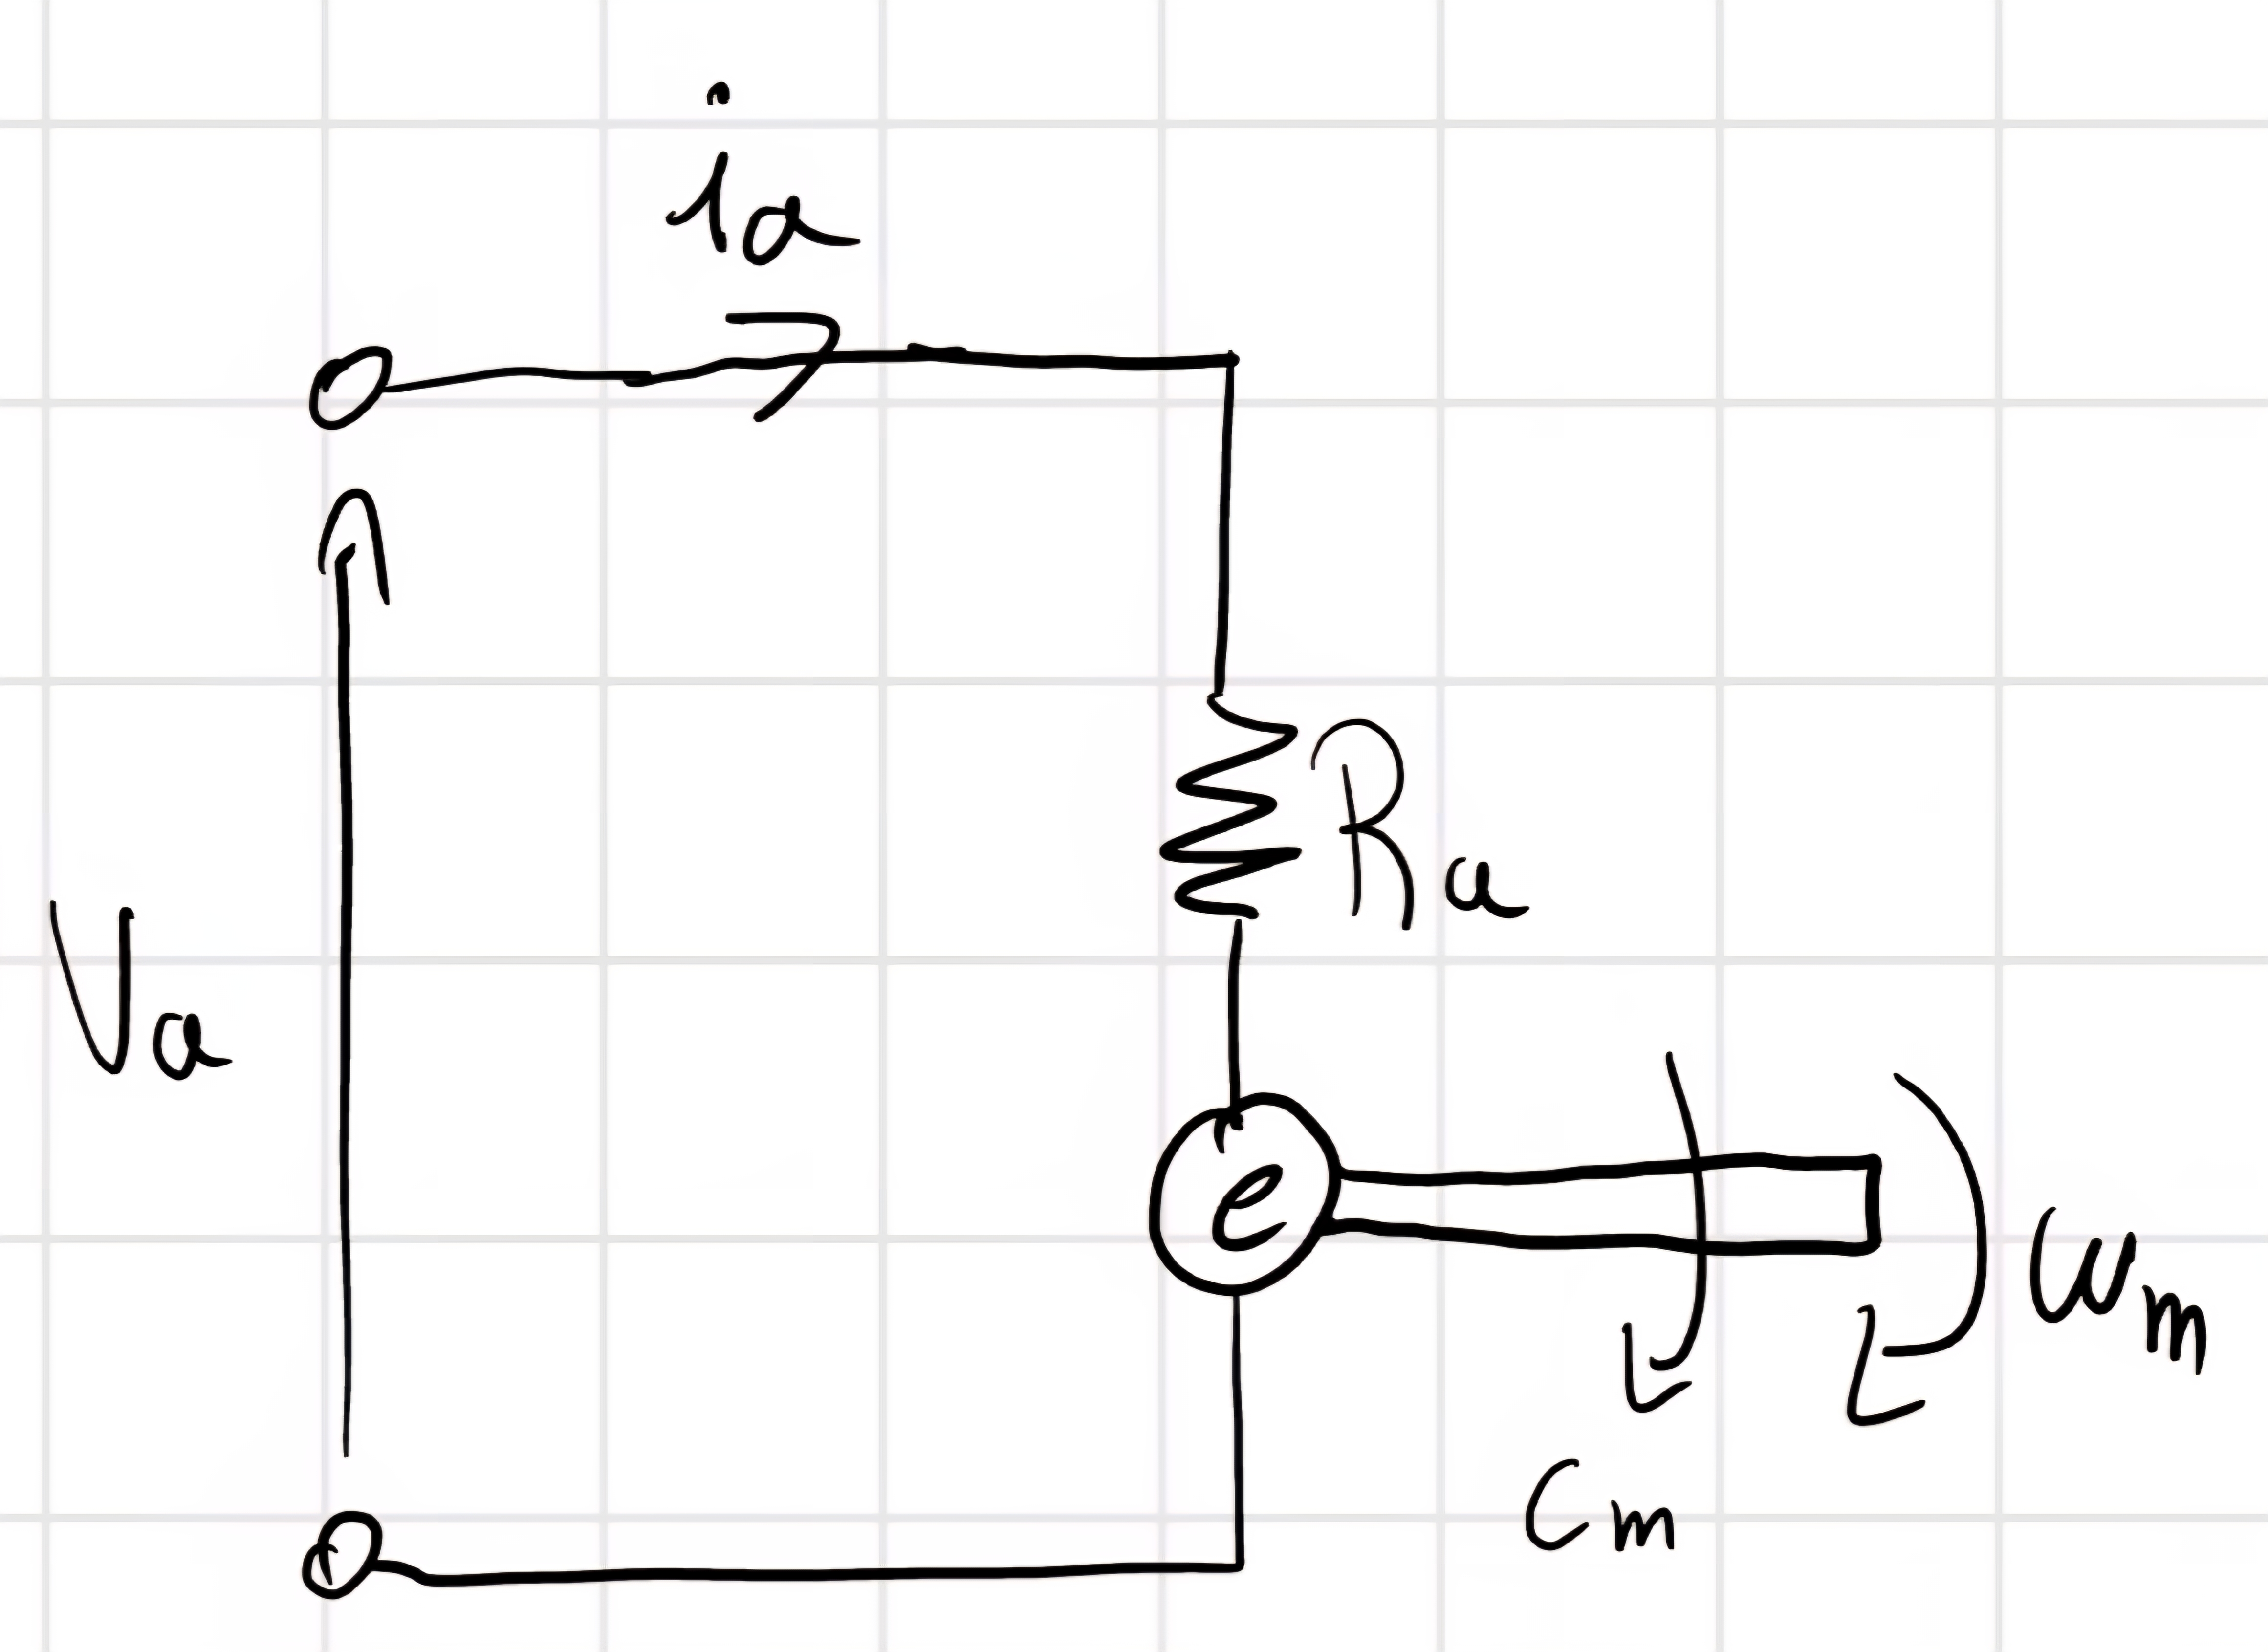 ia
Ra
Va
e
ωm
Cm